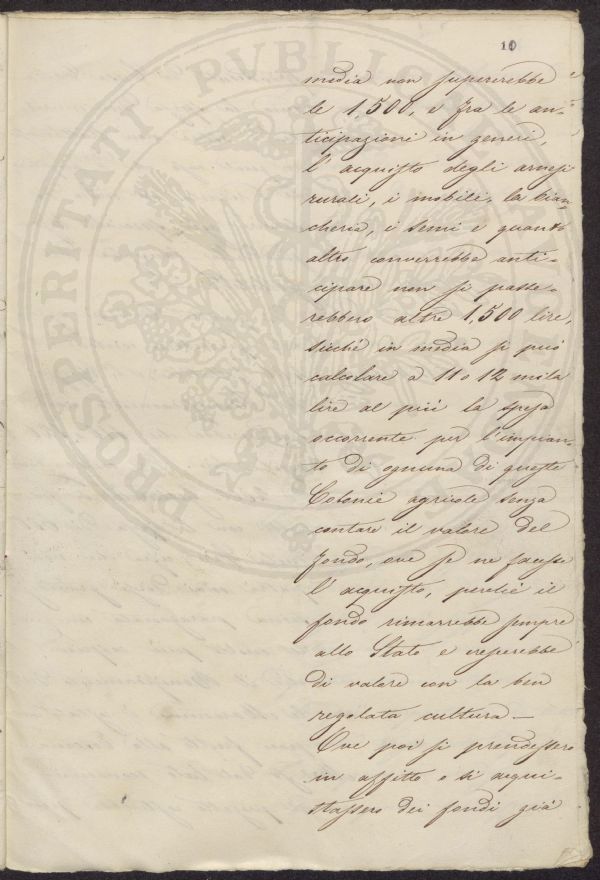 10
media non supererebbe
le 1,500, e fra le an-
ticipazioni in generi,
l'acquisto degli arnesi
rurali, i mobili, la bian-
cheria, i semi e quanto
altro converrebbe anti-
cipare non si passe-
rebbero altre 1,500 lire,
sicché in media si può
calcolare a 11 o 12 mila
lire al più la spesa
occorrente per l'impian-
to di ognuna di queste
Colonie agricole senza
contare il valore del
fondo, ove se ne facesse
l'acquisto, perché il
fondo rimarrebbe sempre
allo Stato e crescerebbe
di valore con la ben
regolata cultura —
Ove poi si prendessero
in affitto o si acqui-
stassero dei fondi già
PROSPERITATI PVBLICAE